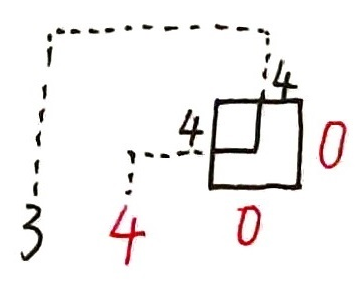 4
4 0
3 4 0